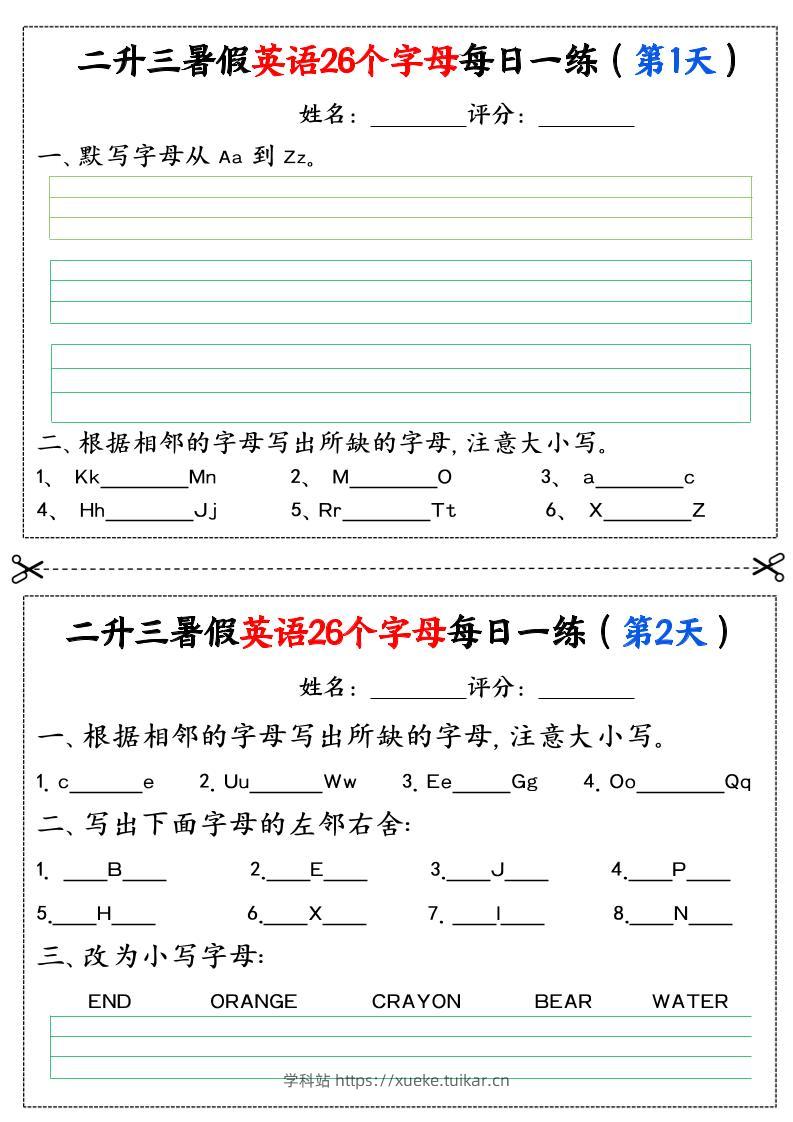 二升三暑假英语26个字母每日一练（第1天）
姓名：________评分：________
一、默写字母从 Aa 到 Zz。
二、根据相邻的字母写出所缺的字母, 注意大小写。
1、 Kk________Mn 2、 M________O 3、 a________c
4、 Hh________Jj 5、Rr________Tt 6、 X________Z
二升三暑假英语26个字母每日一练（第2天）
姓名：________评分：________
一、根据相邻的字母写出所缺的字母, 注意大小写。
1. c______e 2. Uu______Ww 3. Ee_____Gg 4. Oo________Qq
二、写出下面字母的左邻右舍:
1. ____B____ 2.____E____ 3.____J____ 4.____P____
5.____H____ 6.____X____ 7. ____I____ 8.____N____
三、改为小写字母:
END ORANGE CRAYON BEAR WATER
学科站 https://xueke.tuikar.cn